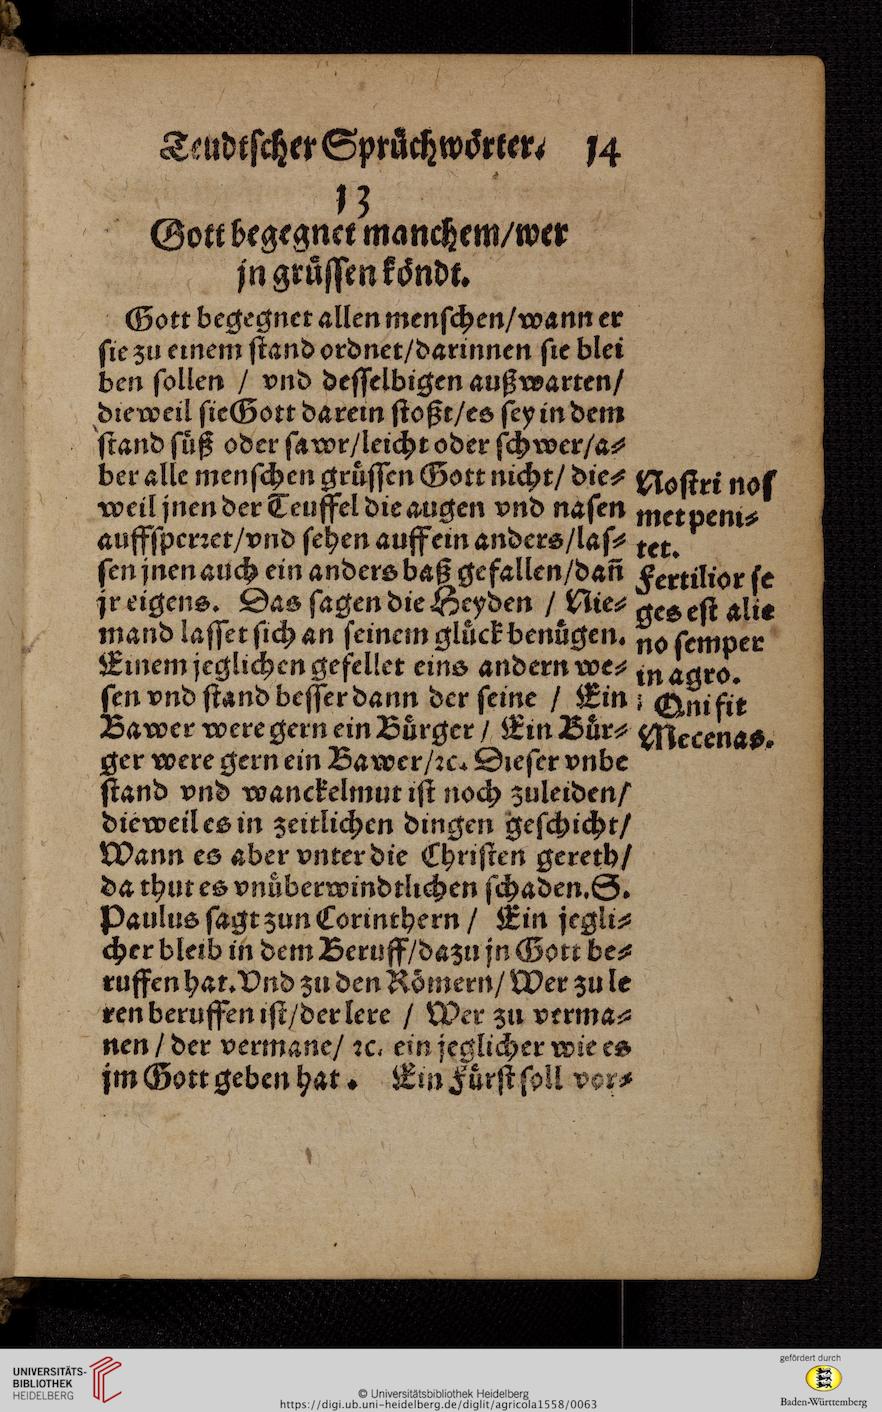 Teudtscher Sprüchwörter. 14
13
Gott begegnet manchem/wer
jn grüssen köndt.
Gott begegnet allen menschen/wann er
sie zu einem stand ordnet/darinnen sie blei
ben sollen / vnd desselbigen außwarten/
dieweil sie Gott darein stoßt/es sey in dem
stand süß oder sawr/leicht oder schwer/a⸗
ber alle menschen grüssen Gott nicht/ die⸗
weil jnen der Teuffel die augen vnd nasen
auffsperret/vnd sehen auff ein anders/las⸗
sen jnen auch ein anders baß gefallen/dañ
jr eigens. Das sagen die Heyden / Nie⸗
mand lasset sich an seinem glück benügen.
Einem jeglichen gefellet eins andern we⸗
sen vnd stand besser dann der seine / Ein
Bawer were gern ein Bürger / Ein Bür⸗
ger were gern ein Bawer/ꝛc. Dieser vnbe
stand vnd wanckelmut ist noch zuleiden/
dieweil es in zeitlichen dingen geschicht/
Wann es aber vnter die Christen gereth/
da thut es vnüberwindtlichen schaden. S.
Paulus sagt zun Corinthern / Ein jegli⸗
cher bleib in dem Beruff/dazu jn Gott be⸗
ruffen hat. Vnd zu den Römern/ Wer zu le
ren beruffen ist/der lere / Wer zu verma⸗
nen / der vermane/ ꝛc. ein jeglicher wie es
jm Gott geben hat. Ein Fürst soll vor⸗
Nostri nos
met peni⸗
tet.
Fertilior se
ges est alie
no semper
in agro.
; Qui fit
Mecenas.
UNIVERSITÄTS-
BIBLIOTHEK
HEIDELBERG
© Universitätsbibliothek Heidelberg
https://digi.ub.uni-heidelberg.de/diglit/agricola1558/0063
gefördert durch
Baden-Württemberg